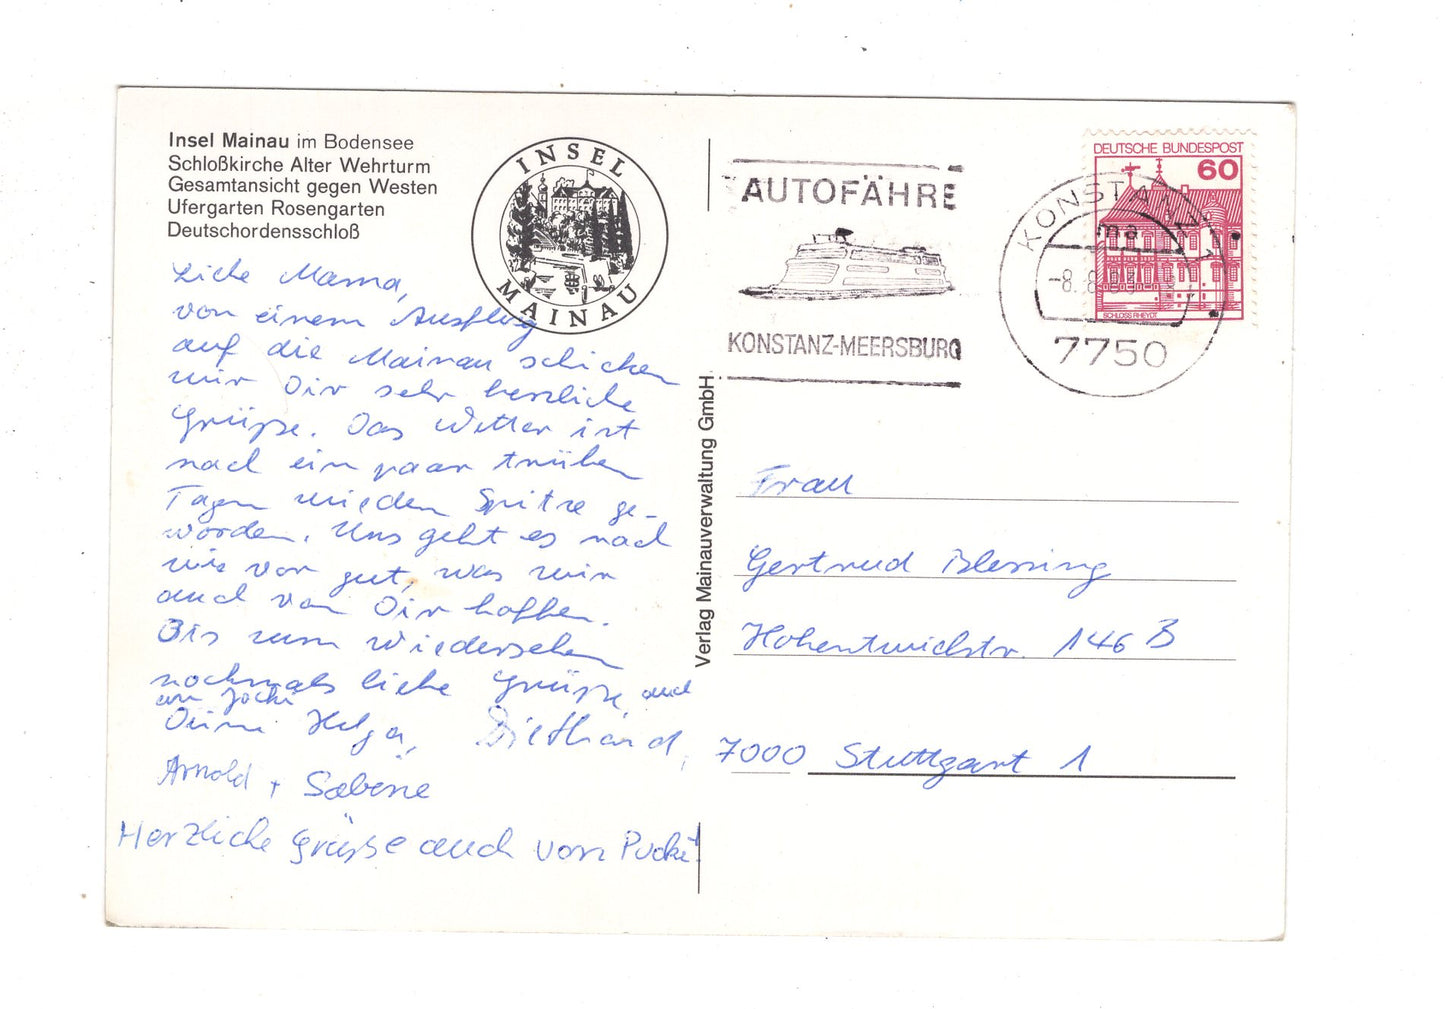 Insel Mainau im Bodensee
Schloßkirche Alter Wehrturm
Gesamtansicht gegen Westen
Ufergarten Rosengarten
Deutschordensschloß
INSEL
MAINAU
Liebe Mama,
von einem Ausflug
auf die Mainau schicken
wir Dir sehr herzliche
Grüße. Das Wetter ist
nach ein paar trüben
Tagen wieder Spitze ge-
worden. Uns geht es nach
wie vor gut, was wir
auch von Dir hoffen.
Bis zum Wiedersehen
nochmals liebe Grüße, auch
an Jochi
Helga, Diethard,
Arnold + Sabine
Herzliche Grüsse auch von Pucki!
Verlag Mainauverwaltung GmbH
AUTOFÄHRE
KONSTANZ-MEERSBURG
DEUTSCHE BUNDESPOST
60
SCHLOSS RHEYDT
KONSTANZ 1
ma
-8.8.
7750
Frau
Gertrud Blessing
Hohentwielstr. 146 B
7000 Stuttgart 1